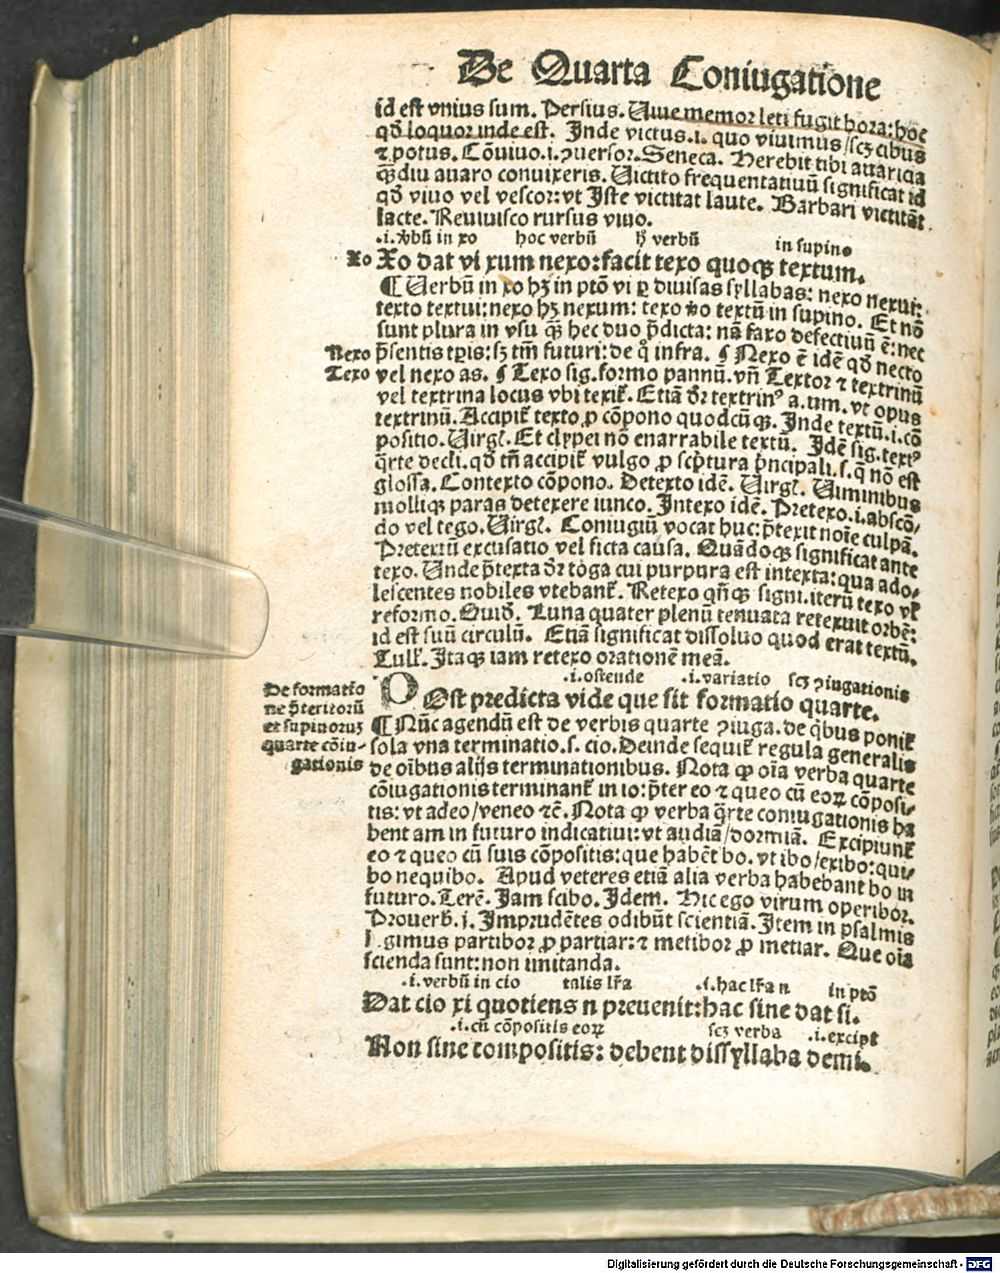 De Quarta Coniugatione
id est vnius sum. Persius. Uiue memor leti fugit hora: hoc
qđ loquor inde est. Inde victus .i. quo viuimus / scꝫ cibus
⁊ potus. Cōuiuo .i. ꝯuersor. Seneca. Herebit tibi auariţia
qᷓ diu auaro conuixeris. Uictito frequentatiuū significat id
qđ viuo vel vescor: vt Iste victitat laute. Barbari victitāt
lacte. Reuiuisco rursus viuo.
.i. ꝟbū in xo hoc verbū hꝰ verbū in supino
Xo Xo dat vi xum nexo: facit texo quoqꝫ textum.
¶ Uerbū in xo hꝫ in ptō vi ꝑ diuisas syllabas: nexo nexui:
texto textui: nexo hꝫ nexum: texo ꝟo textū in supino. Et nō
sunt plura in vsu qᷓ hec duo p̄dicta: nā faxo defectiuū ē: nec
Nexo p̄sentis tp̄is: sꝫ tm̄ futuri: de qͦ infra. ¶ Nexo ē idē qđ necto
Texo vel nexo as. ¶ Texo sig. formo pannū. vn̄ Textor ⁊ textrinū
vel textrina locus vbi texit̃. Etiā dr̄ textrinꝰ a. um. vt opus
textrinū. Accipit̃ texto ꝓ cōpono quodcūqꝫ. Inde textū .i. cō
positio. Uirgl̓. Et clypei nō enarrabile textū. Idē sig. textꝰ
q̄rte decli. qđ tn̄ accipit̃ vulgo ꝓ scp̄tura p̄ncipali .s. q̄ nō est
glossa. Contexto cōpono. Detexto idē. Uirgl̓. Uiminibus
molliqꝫ paras detexere iunco. Intexo idē. Pretexo .i. abscō/
do vel tego. Uirgl̓. Coniugiū vocat huc: p̄texit noīe culpā.
Pretextū excusatio vel ficta causa. Quādoqꝫ significat ante
texo. Unde p̄texta dr̄ toga cui purpura est intexta: qua ado/
lescentes nobiles vtebant̃. Retexo qn̄qꝫ signi. iterū texo vl̓
reformo. Ouiđ. Luna quater plenū tenuata retexuit orbē:
id est suū circulū. Etiā significat dissoluo quod erat textū.
Tull̓. Itaqꝫ iam retexo orationē meā.
.i. ostende .i. variatio scꝫ ꝯiugationis
De formatio
ne p̄teritorū
et supinoruꝫ
quarte cōiu-
gationis
POst predicta vide que sit formatio quarte.
¶ Nūc agendū est de verbis quarte ꝯiuga. de qͥbus ponit̃
sola vna terminatio .s. cio. Deinde sequit̃ regula generalis
de oībus alijs terminationibus. Nota ꝙ oīa verba quarte
cōiugationis terminant̃ in io: p̄ter eo ⁊ queo cū eoꝝ cōposi/
tis: vt adeo / veneo ⁊c̄. Nota ꝙ verba q̄rte coniugationis ha
bent am in futuro indicatiui: vt audiā / dormiā. Excipiunt̃
eo ⁊ queo cū suis cōpositis: que habēt bo. vt ibo / exibo: qui/
bo nequibo. Apud veteres etiā alia verba habebant bo in
futuro. Terē. Iam scibo. Idem. Hic ego virum operibor.
Prouerb̓. j. Imprudētes odibūt scientiā. Item in psalmis
l gimus partibor ꝓ partiar: ⁊ metibor ꝓ metiar. Que oīa
scienda sunt: non imitanda.
.i. verbū in cio talis lr̄a .i. hac lr̄a n in ptō
Dat cio xi quotiens n preuenit: hac sine dat si.
.i. cū cōpositis eoꝝ scꝫ verba .i. excipt
Non sine compositis: debent dissyllaba demi.
Digitalisierung gefördert durch die Deutsche Forschungsgemeinschaft - DFG